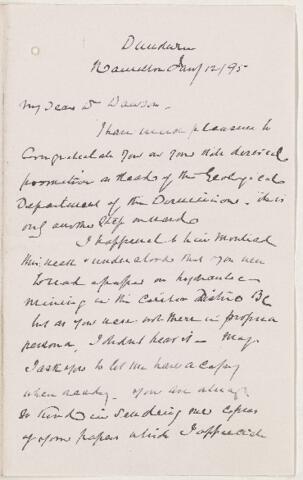 Dundurn
Hamilton Jany 12/95
My dear Dr Dawson.
I have much pleasure to
Congratulate you on your well deserved
promotion as Head of the Geological
Department of the Dominion. it is
only another step onward
I happened to be in Montreal
this week & understood that you were
to read a paper on hydraulic
mining in the Cariboo District BC
but as you were not there in propria
persona, I didn't hear it — May
I ask you to let me have a copy
when ready. You are always
so kind in sending me copies
of your papers which I appreciate